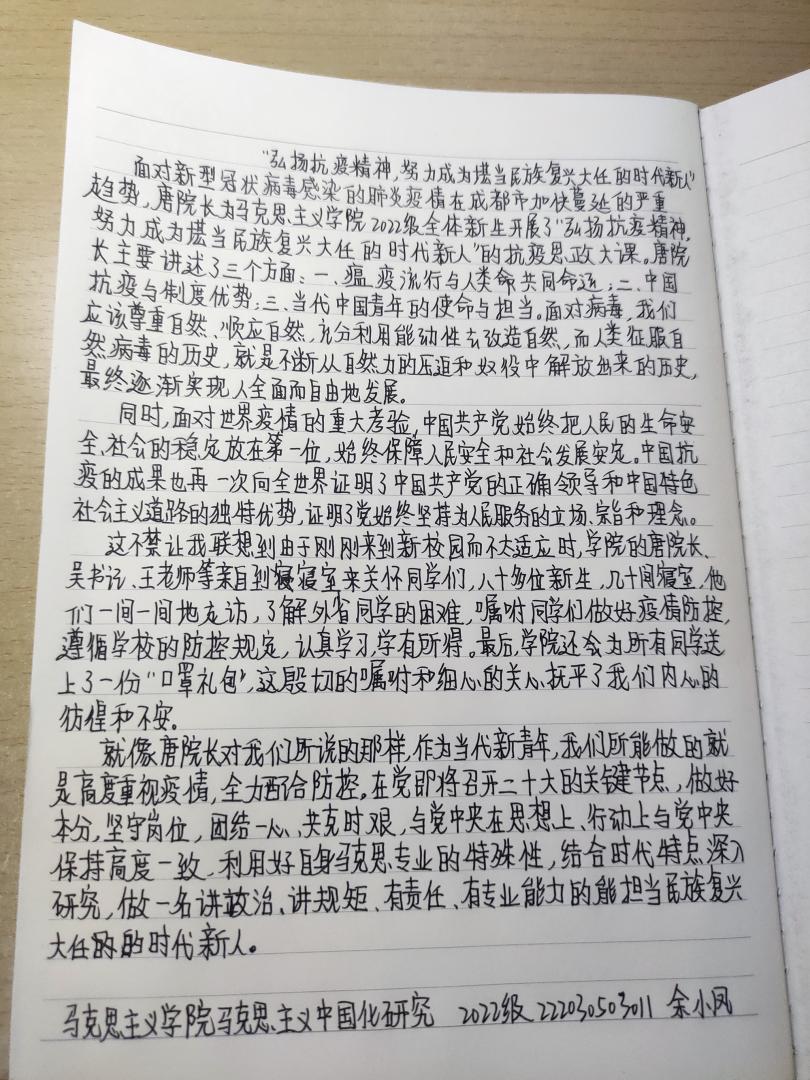 “弘扬抗疫精神,努力成为堪当民族复兴大任的时代新人”
面对新型冠状病毒感染的肺炎疫情在成都市加快蔓延的严重
趋势,唐院长为马克思主义学院2022级全体新生开展了“弘扬抗疫精神,
努力成为堪当民族复兴大任的时代新人”的抗疫思政大课。唐院
长主要讲述了三个方面:一、瘟疫流行与人类命共同命运;二、中国
抗疫与制度优势;三、当代中国青年的使命与担当。面对病毒,我们
应该尊重自然、顺应自然,充分利用能动性去改造自然,而人类征服自
然病毒的历史,就是不断从自然力的压迫和奴役中解放出来的历史,
最终逐渐实现人全面而自由地发展。
同时,面对世界疫情的重大考验,中国共产党始终把人民的生命安
全、社会的稳定放在第一位,始终保障人民安全和社会发展安定。中国抗
疫的成果也再一次向全世界证明了中国共产党的正确领导和中国特色
社会主义道路的独特优势,证明了党始终坚持为人民服务的立场、宗旨和理念。
这不禁让我联想到由于刚刚来到新校园而不大适应时,学院的唐院长、
吴书记、王老师等亲自到寝室来关怀同学们,八十多位新生,几十间寝室,他
们一间一间地走访,了解外省同学的困难,嘱咐同学们做好疫情防控,
遵循学校的防控规定,认真学习,学有所得。最后,学院还会为所有同学送
上了一份“口罩礼包”,这殷切的嘱咐和细心的关心抚平了我们内心的
彷徨和不安。
就像唐院长对我们所说的那样,作为当代新青年,我们所能做的就
是高度重视疫情,全力配合防控。在党即将召开二十大的关键节点,做好
本分,坚守岗位,团结一心、共克时艰,与党中央在思想上、行动上与党中央
保持高度一致,利用好自身马克思专业的特殊性,结合时代特点,深入
研究,做一名讲政治、讲规矩、有责任、有专业能力的能担当民族复兴
大任的时代新人。
马克思主义学院马克思主义中国化研究 2022级 222030503011 余小凤